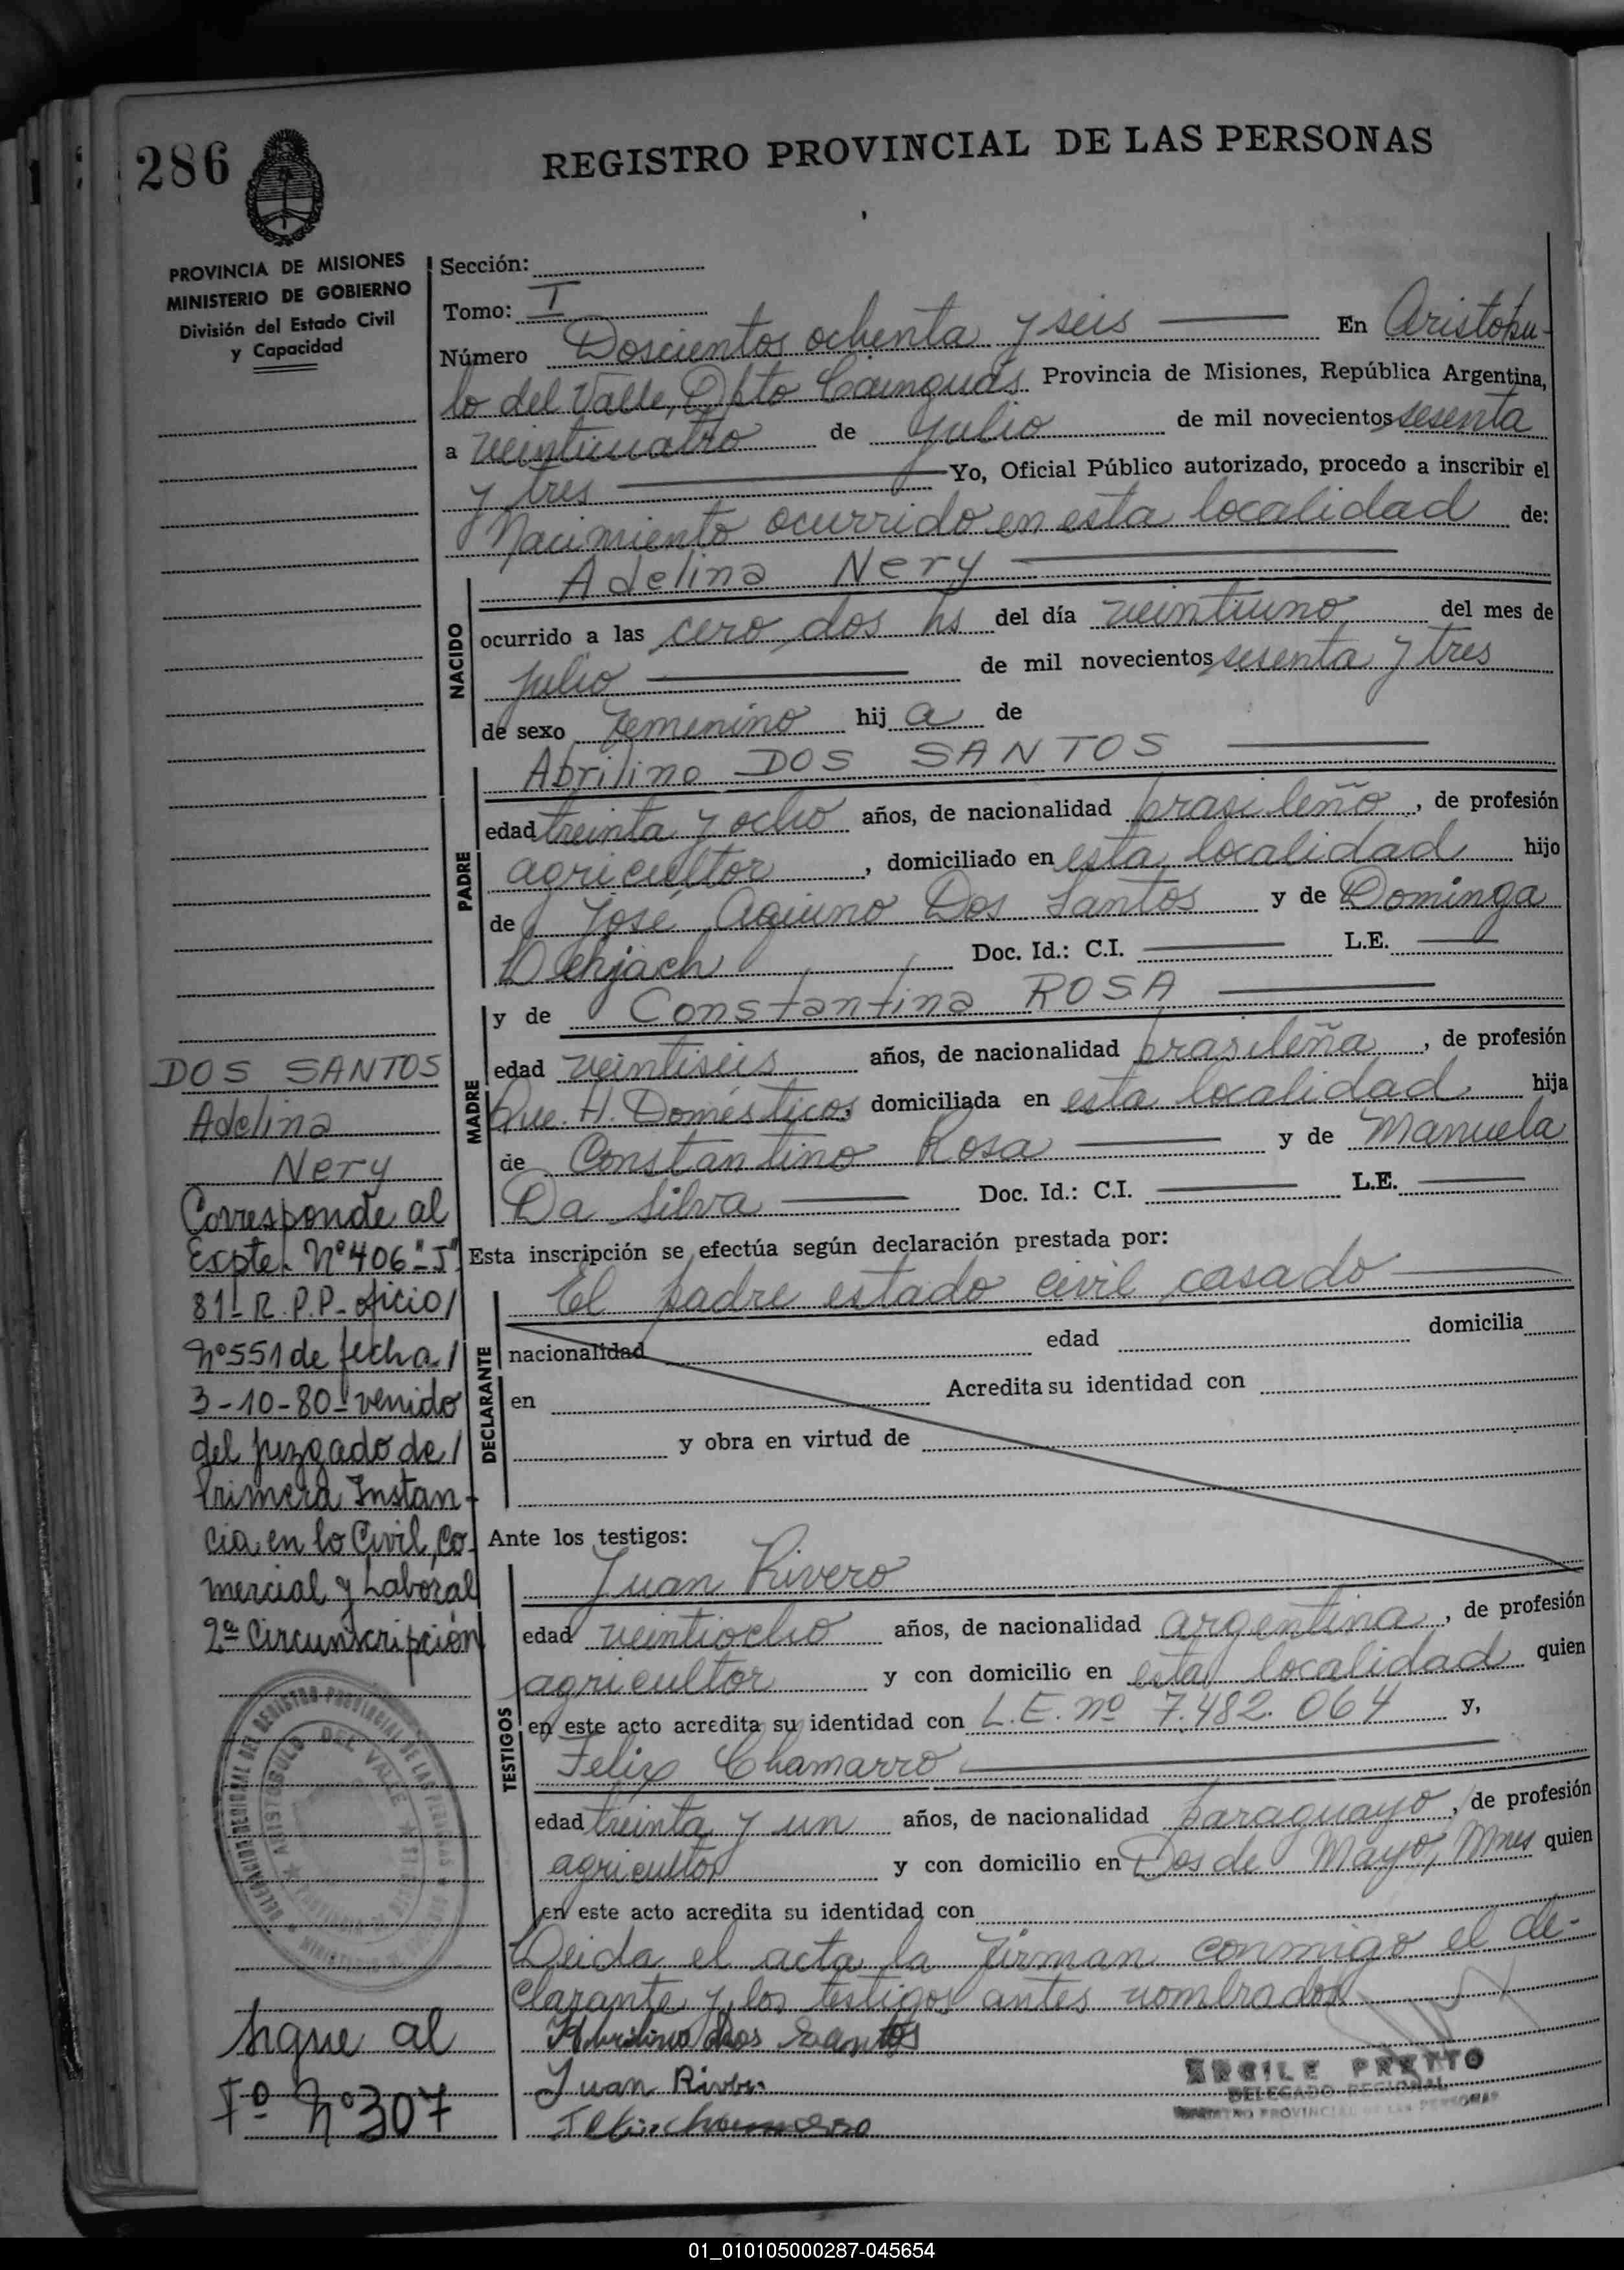 286
REGISTRO PROVINCIAL DE LAS PERSONAS
PROVINCIA DE MISIONES
MINISTERIO DE GOBIERNO
División del Estado Civil
y Capacidad
Sección:
Tomo: I
Número Doscientos ochenta y seis En Aristobu-
lo del Valle, Dpto Cainguas Provincia de Misiones, República Argentina,
a veinticuatro de Julio de mil novecientos sesenta
y tres Yo, Oficial Público autorizado, procedo a inscribir el
Nacimiento ocurrido en esta localidad de:
NACIDO
Adelina Nery
ocurrido a las cero dos hs del día veintiuno del mes de
julio de mil novecientos sesenta y tres
de sexo femenino hij a de
PADRE
Abrilino DOS SANTOS
edad treinta y ocho años, de nacionalidad brasileño, de profesión
agricultor, domiciliado en esta localidad hijo
de José Dos Santos y de Dominga
Doc. Id.: C.I. L.E.
MADRE
y de Constantina ROSA
edad veintiseis años, de nacionalidad brasileña, de profesión
Que. H. Domésticos, domiciliada en esta localidad hija
de Constantino Rosa y de Manuela
Da Silva Doc. Id.: C.I. L.E.
Esta inscripción se efectúa según declaración prestada por:
DECLARANTE
El padre estado civil casado
nacionalidad edad domicilia
en Acredita su identidad con
y obra en virtud de
Ante los testigos:
TESTIGOS
Juan Rivero
edad veintiocho años, de nacionalidad argentina, de profesión
agricultor y con domicilio en esta localidad quien
en este acto acredita su identidad con L.E. nº 7.482.064 y,
Felix Chamarro
edad treinta y un años, de nacionalidad paraguayo, de profesión
agricultor y con domicilio en Dos de Mayo, Mnes quien
en este acto acredita su identidad con
Leida el acta la firman conmigo el de-
clarante y los testigos antes nombrados
Abrilino dos Santos
Juan Rivero
PRETTO
DELEGADO REGIONAL
DOS SANTOS
Adelina
Nery
Corresponde al
Expte. Nº 406-"J"
81- R.P.P- oficio/
Nº 551 de fecha/
3-10-80- venido
del juzgado de/
Primera Instan-
cia en lo Civil, Co-
mercial y Laboral
2ª Circunscripción
DELEGACION REGIONAL DEL REGISTRO PROVINCIAL DE LAS PERSONAS
ARISTOBULO DEL VALLE
Sigue al
Fº Nº 307
01_010105000287-045654